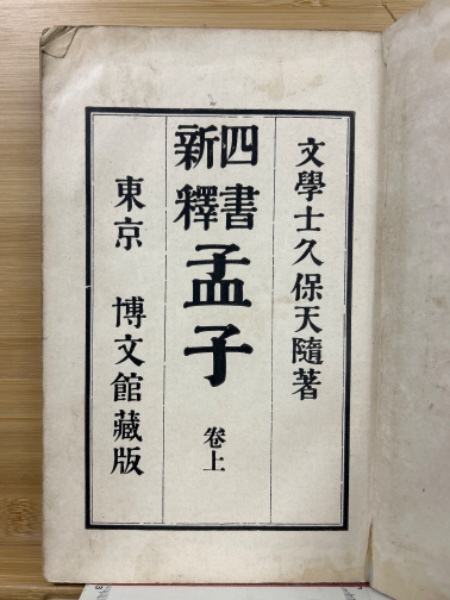 文學士久保天隨著
四書
新釋
孟子
卷上
東京 博文館藏版